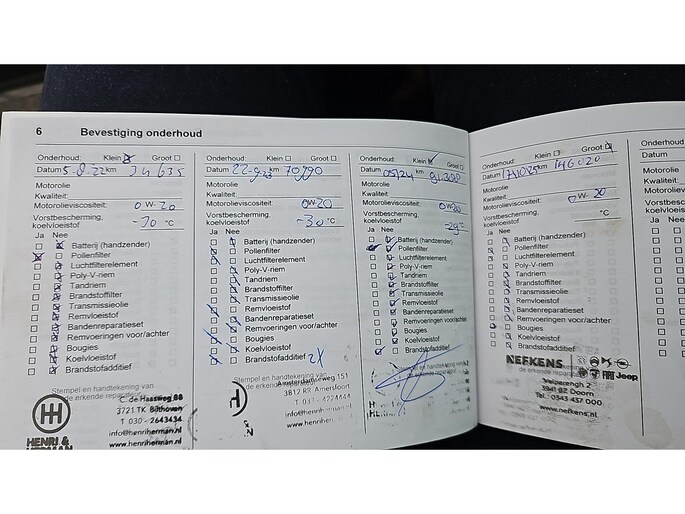 6 Bevestiging onderhoud
Onderhoud: Klein Groot
Datum 5-8-22 km 34635
Motorolie
Kwaliteit:
Motorolieviscositeit: 0W-20
Vorstbescherming,
koelvloeistof -30 °C
Ja Nee
Batterij (handzender)
Pollenfilter
Luchtfilterelement
Poly-V-riem
Tandriem
Brandstoffilter
Transmissieolie
Remvloeistof
Bandenreparatieset
Remvoeringen voor/achter
Bougies
Koelvloeistof
Brandstofadditief
Stempel en handtekening van
de erkende reparateur
C. de Haasweg 88
3721 TK Bilthoven
T 030 - 2643434
info@henriherman.nl
www.henriherman.nl
HENRI &
HERMAN
Onderhoud: Klein Groot
Datum 22-9-23 km 70790
Motorolie
Kwaliteit:
Motorolieviscositeit: 0W-20
Vorstbescherming,
koelvloeistof -30 °C
Ja Nee
Batterij (handzender)
Pollenfilter
Luchtfilterelement
Poly-V-riem
Tandriem
Brandstoffilter
Transmissieolie
Remvloeistof
Bandenreparatieset
Remvoeringen voor/achter
Bougies
Koelvloeistof
Brandstofadditief 2x
Stempel en handtekening van
de erkende reparateur
Amsterdamseweg 151
3812 RR Amersfoort
T 033 - 4224444
info@henriherman.nl
www.henriherman
Onderhoud: Klein Groot
Datum 05/24 km
Motorolie
Kwaliteit:
Motorolieviscositeit: 0W-20
Vorstbescherming,
koelvloeistof -29 °C
Ja Nee
Batterij (handzender)
Pollenfilter
Luchtfilterelement
Poly-V-riem
Tandriem
Brandstoffilter
Transmissieolie
Remvloeistof
Bandenreparatieset
Remvoeringen voor/achter
Bougies
Koelvloeistof
Brandstofadditief
Stempel en handtekening van
HENRI &
HERMAN
Onderhoud: Klein Groot
Datum km 146020
Motorolie
Kwaliteit:
Motorolieviscositeit: 0W-20
Vorstbescherming,
koelvloeistof °C
Ja Nee
Batterij (handzender)
Pollenfilter
Luchtfilterelement
Poly-V-riem
Tandriem
Brandstoffilter
Transmissieolie
Remvloeistof
Bandenreparatieset
Remvoeringen voor/achter
Bougies
Koelvloeistof
Brandstofadditief
NEFKENS
Jeep
3941 BZ Doorn
Tel. 0343 437 000
www.nefkens.nl
Onderhoud:
Datum
Motorolie
Kwaliteit:
Motorolieviscositeit
Vorstbescherming,
koelvloeistof
Ja Nee